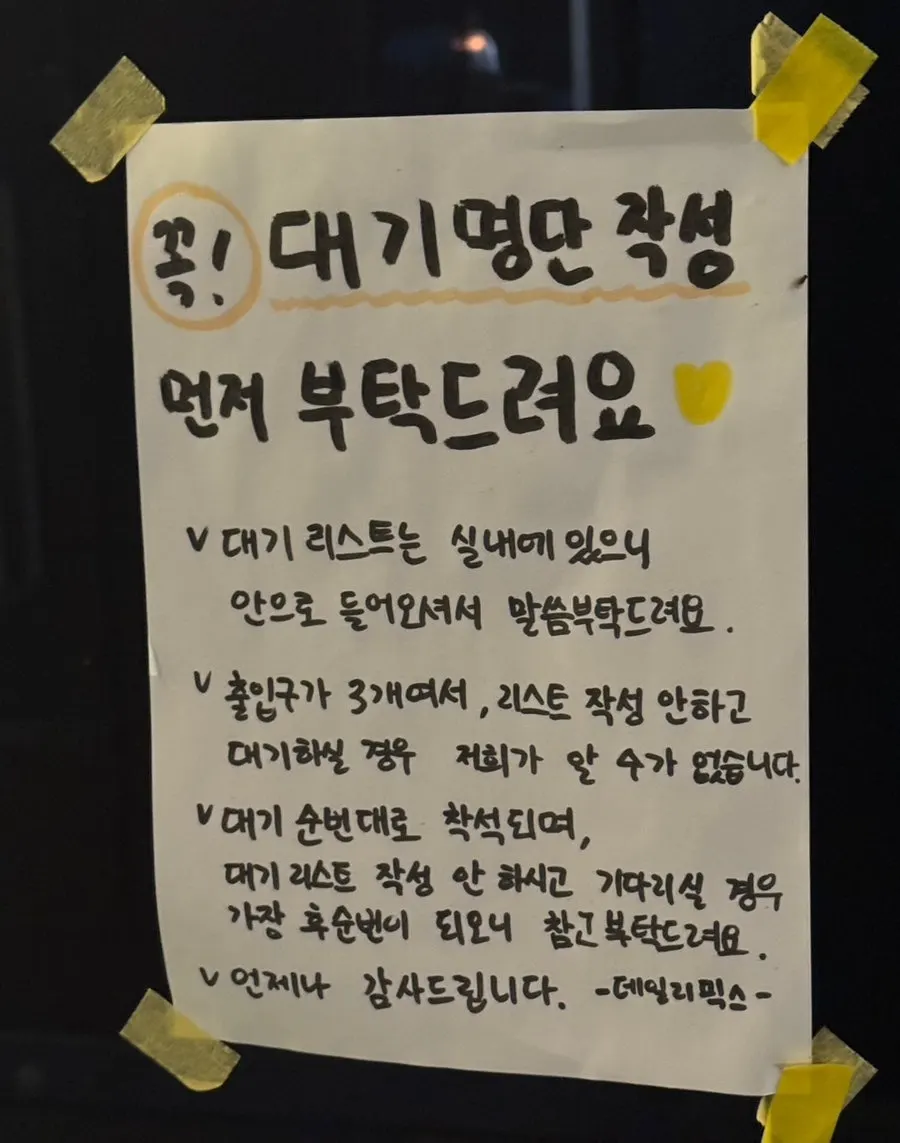 꼭! 대기명단 작성
먼저 부탁드려요
v 대기 리스트는 실내에 있으니
안으로 들어오셔서 말씀부탁드려요.
v 출입구가 3개여서, 리스트 작성 안하고
대기하실 경우 저희가 알 수가 없습니다.
v 대기 순번대로 착석되며,
대기리스트 작성 안 하시고 기다리실 경우
가장 후순번이 되오니 참고부탁드려요.
v 언제나 감사드립니다. -데일리픽스-